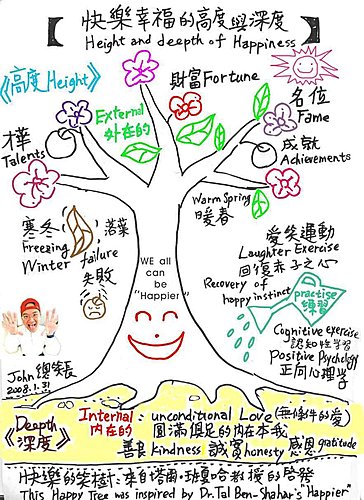 【快樂幸福的高度與深度】
Height and deepth of Happiness
《高度Height》
財富Fortune
名位
Fame
External
外在的
Talents
成就
Achievements
Warm Spring
暖春
寒冬
Freezing
Winter
落葉
failure
失敗
WE all
can
be
"Happier"
愛笑運動
Laughter Exercise
回復赤子之心
Recovery of
happy instinct
practise
練習
Cognitive exercise
認知性學習
Positive Psychology
正向心理學
John 總笑長
2008.1.31
《Deepth
深度》
Internal: unconditional Love (無條件的愛)
內在的
圓滿俱足的內在本我
善良 kindness 誠實 honesty 感恩 gratitude
快樂的笑樹: 來自塔爾·班夏哈教授的啓發
This Happy Tree was inspired by Dr. Tal Ben-Shahar's "Happier"